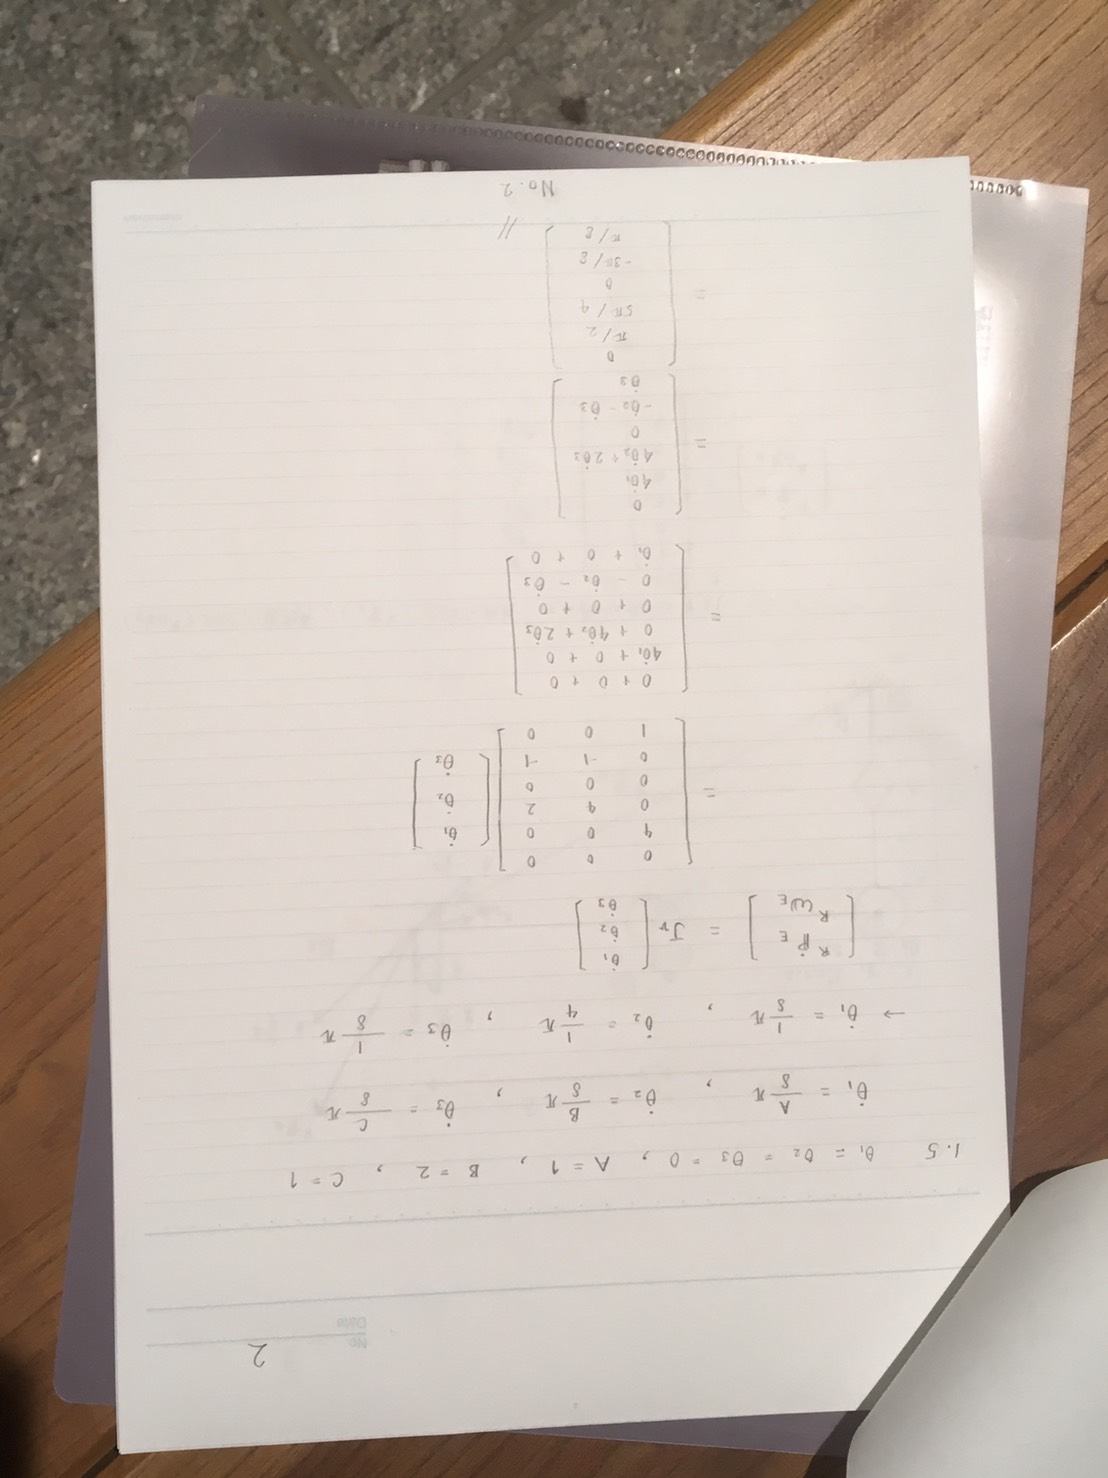 No. 2
Date
1.5 θ₁ = θ₂ = θ₃ = 0 , A = 1 , B = 2 , C = 1
θ̇₁ = A/8 π , θ̇₂ = B/8 π , θ̇₃ = C/8 π
→ θ̇₁ = 1/8 π , θ̇₂ = 1/4 π , θ̇₃ = 1/8 π
[ ᴿṖ_E ; ᴿω_E ] = Jᵥ [ θ̇₁ ; θ̇₂ ; θ̇₃ ]
= [ 0 0 0 ; 4 0 0 ; 0 4 2 ; 0 0 0 ; 0 -1 -1 ; 1 0 0 ] [ θ̇₁ ; θ̇₂ ; θ̇₃ ]
= [ 0 + 0 + 0 ; 4θ̇₁ + 0 + 0 ; 0 + 4θ̇₂ + 2θ̇₃ ; 0 + 0 + 0 ; 0 - θ̇₂ - θ̇₃ ; θ̇₁ + 0 + 0 ]
= [ 0 ; 4θ̇₁ ; 4θ̇₂ + 2θ̇₃ ; 0 ; -θ̇₂ - θ̇₃ ; θ̇₃ ]
= [ 0 ; π/2 ; 5π/4 ; 0 ; -3π/8 ; π/8 ] //
No. 2